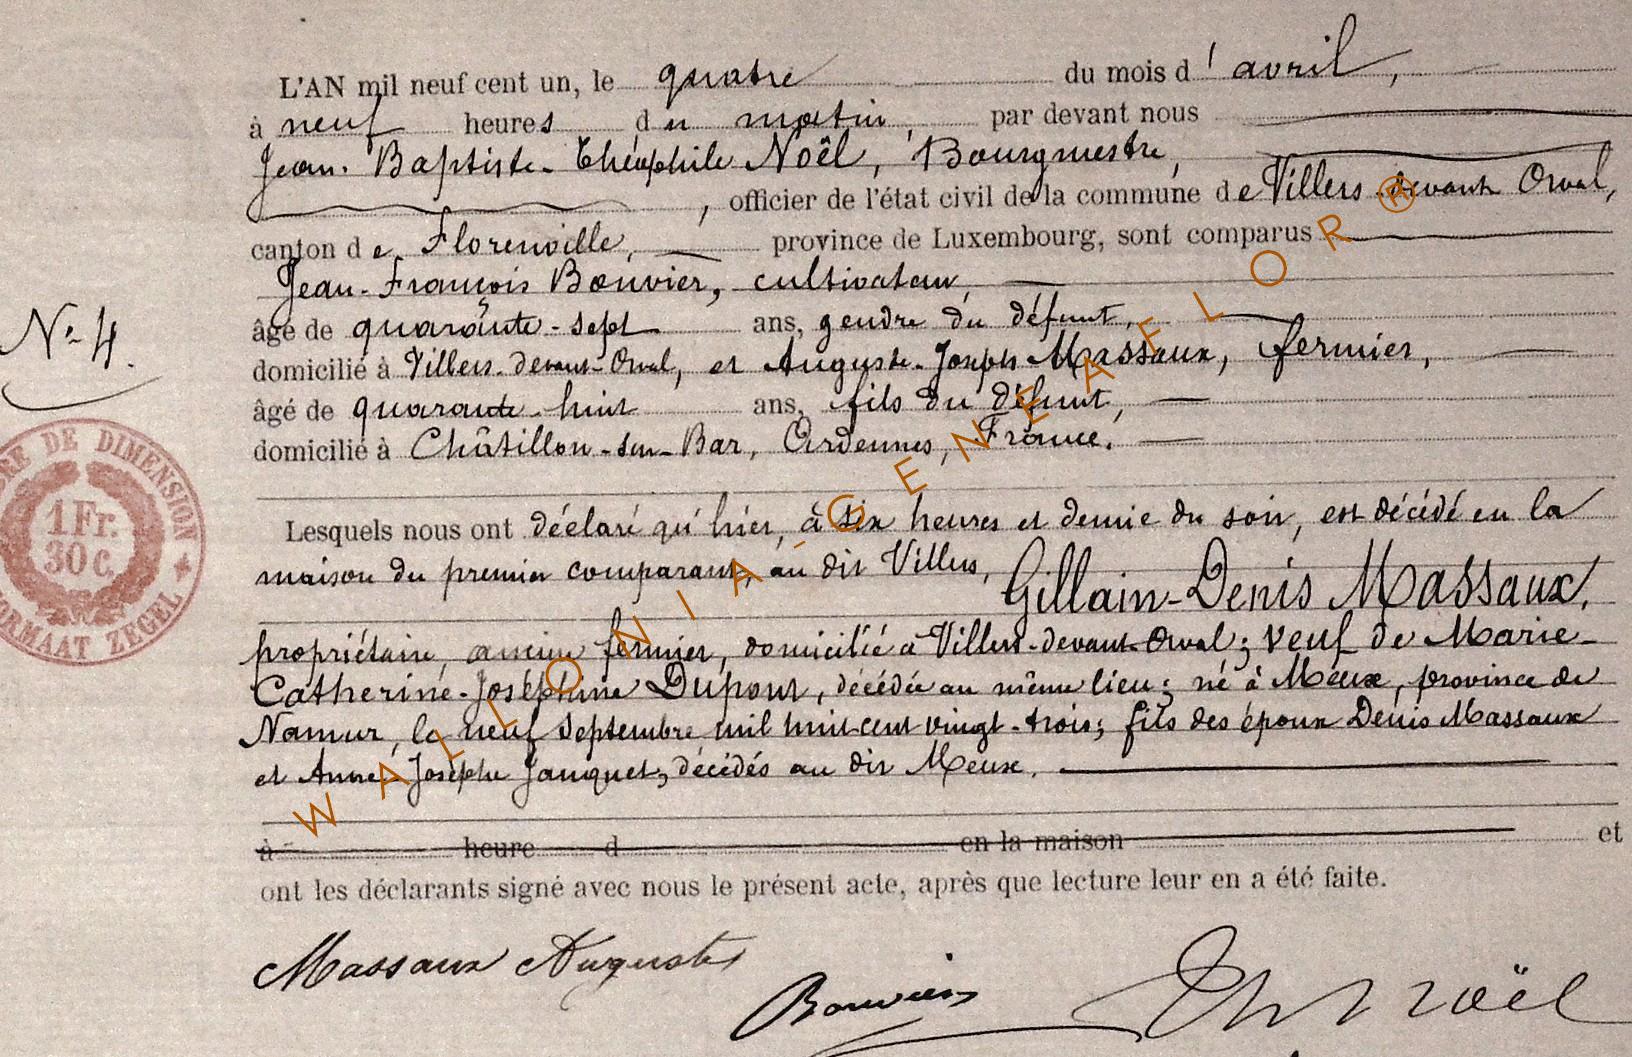 L'AN mil neuf cent un, le quatre du mois d'avril,
à neuf heures du matin, par devant nous
Jean-Baptiste-Théophile Noël, Bourgmestre,
, officier de l'état civil de la commune de Villers devant Orval,
canton de Florenville, province de Luxembourg, sont comparus
Jean-François Bouvier, cultivateur
âgé de quarante-sept ans, gendre du défunt,
domicilié à Villers-devant-Orval, et Auguste-Joseph Massaux, fermier,
N° 4.
âgé de quarante-huit ans, fils du défunt,
domicilié à Châtillon-sur-Bar, Ardennes, France.
TIMBRE DE DIMENSION
1 Fr.
30 c.
FORMAAT ZEGEL
Lesquels nous ont déclaré qu'hier, à six heures et demie du soir, est décédé en la
maison du premier comparant, au dit Villers, Gillain-Denis Massaux,
propriétaire, ancien fermier, domicilié à Villers-devant-Orval; veuf de Marie-
Catherine-Joséphine Dupont, décédée au même lieu; né à Meux, province de
Namur, le neuf septembre mil huit cent vingt-trois; fils des époux Denis Massaux
et Anne-Josèphe Janquet, décédés au dit Meux.
à heure d en la maison et
ont les déclarants signé avec nous le présent acte, après que lecture leur en a été faite.
Massaux Auguste
Bouvier
Th Noël
WALLONIA-GENEAFLOR®